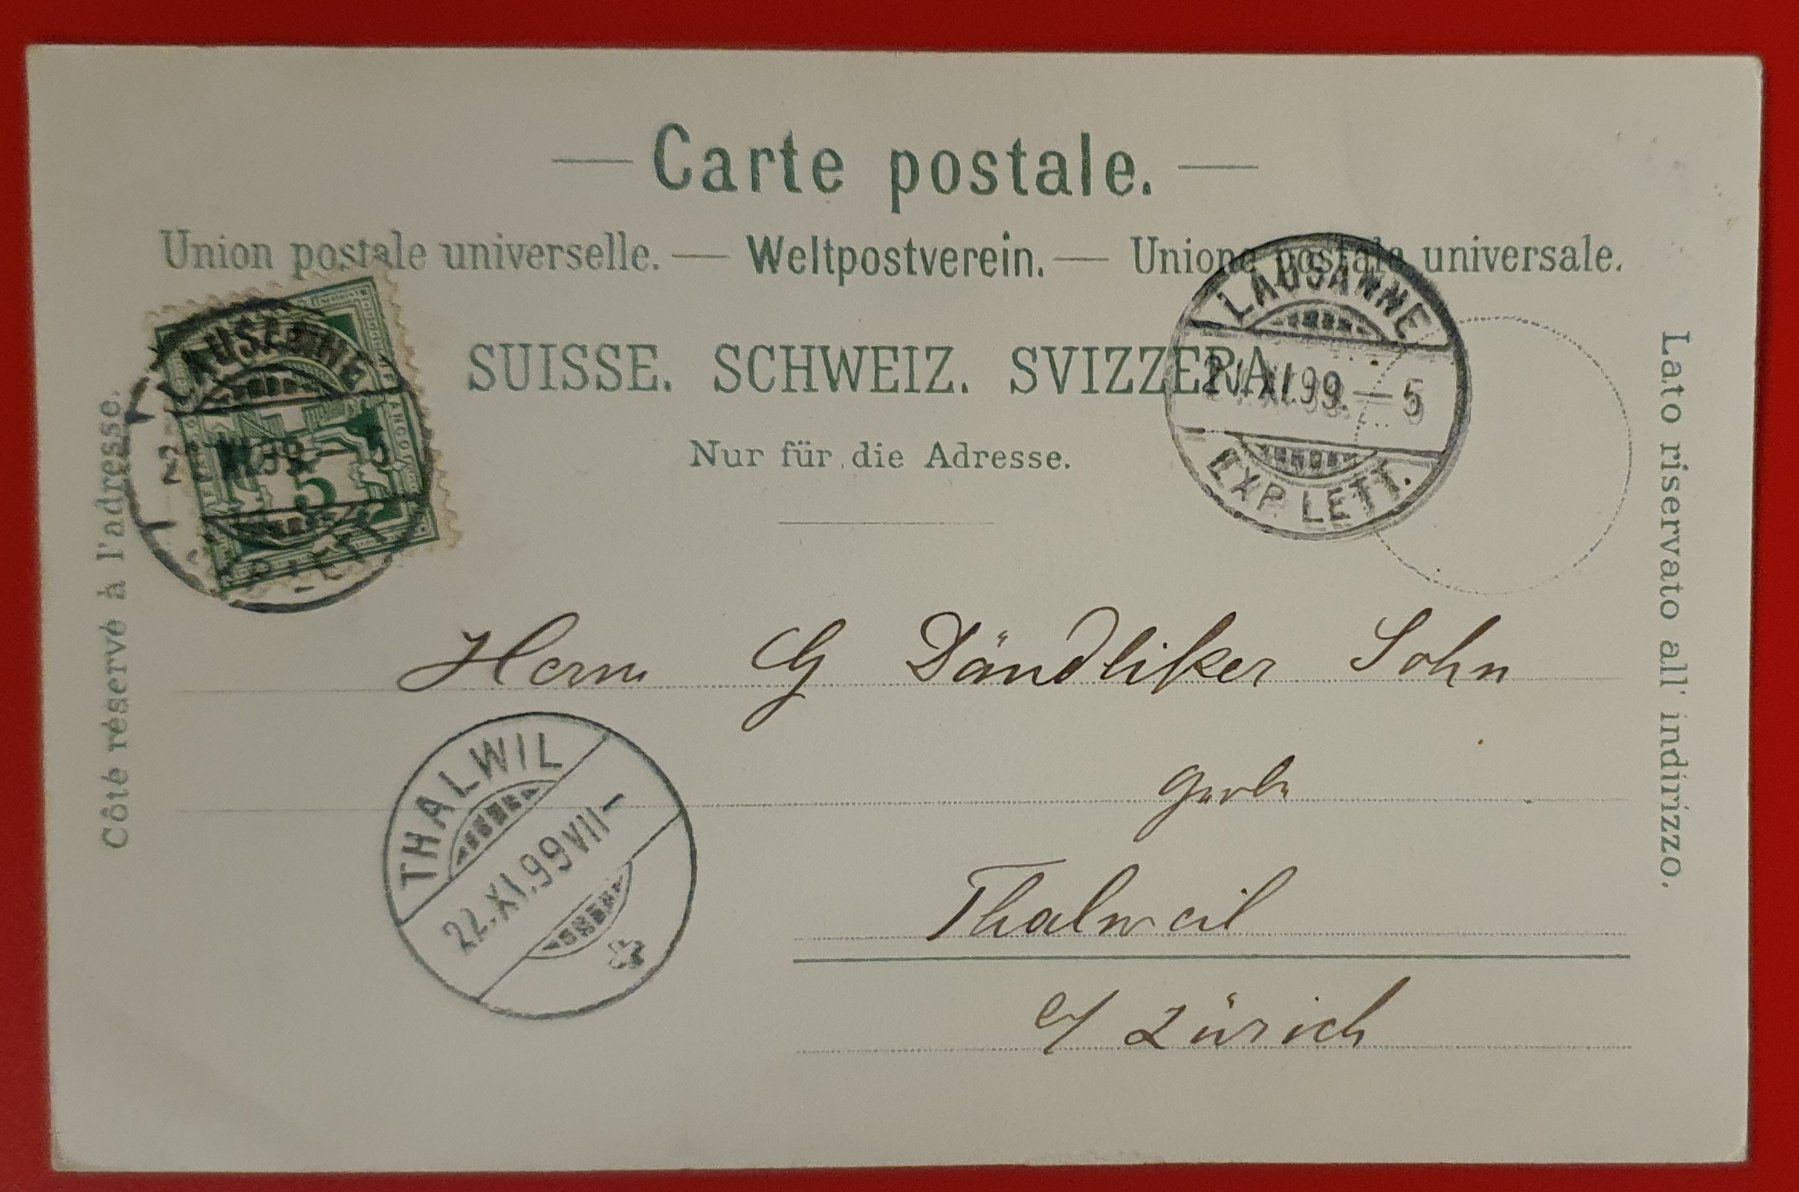 Carte postale.
Union postale universelle. — Weltpostverein. — Unione postale universale.
SUISSE. SCHWEIZ. SVIZZERA.
Nur für die Adresse.
Côté réservé à l'adresse.
Lato riservato all' indirizzo.
LAUSANNE
XI.99
5
LAUSANNE
21.XI.99.–5
EXP. LETT.
Herrn G Dändliker Sohn
Gerbe
Thalweil
c/ Zürich
THALWIL
22.XI.99 VII–